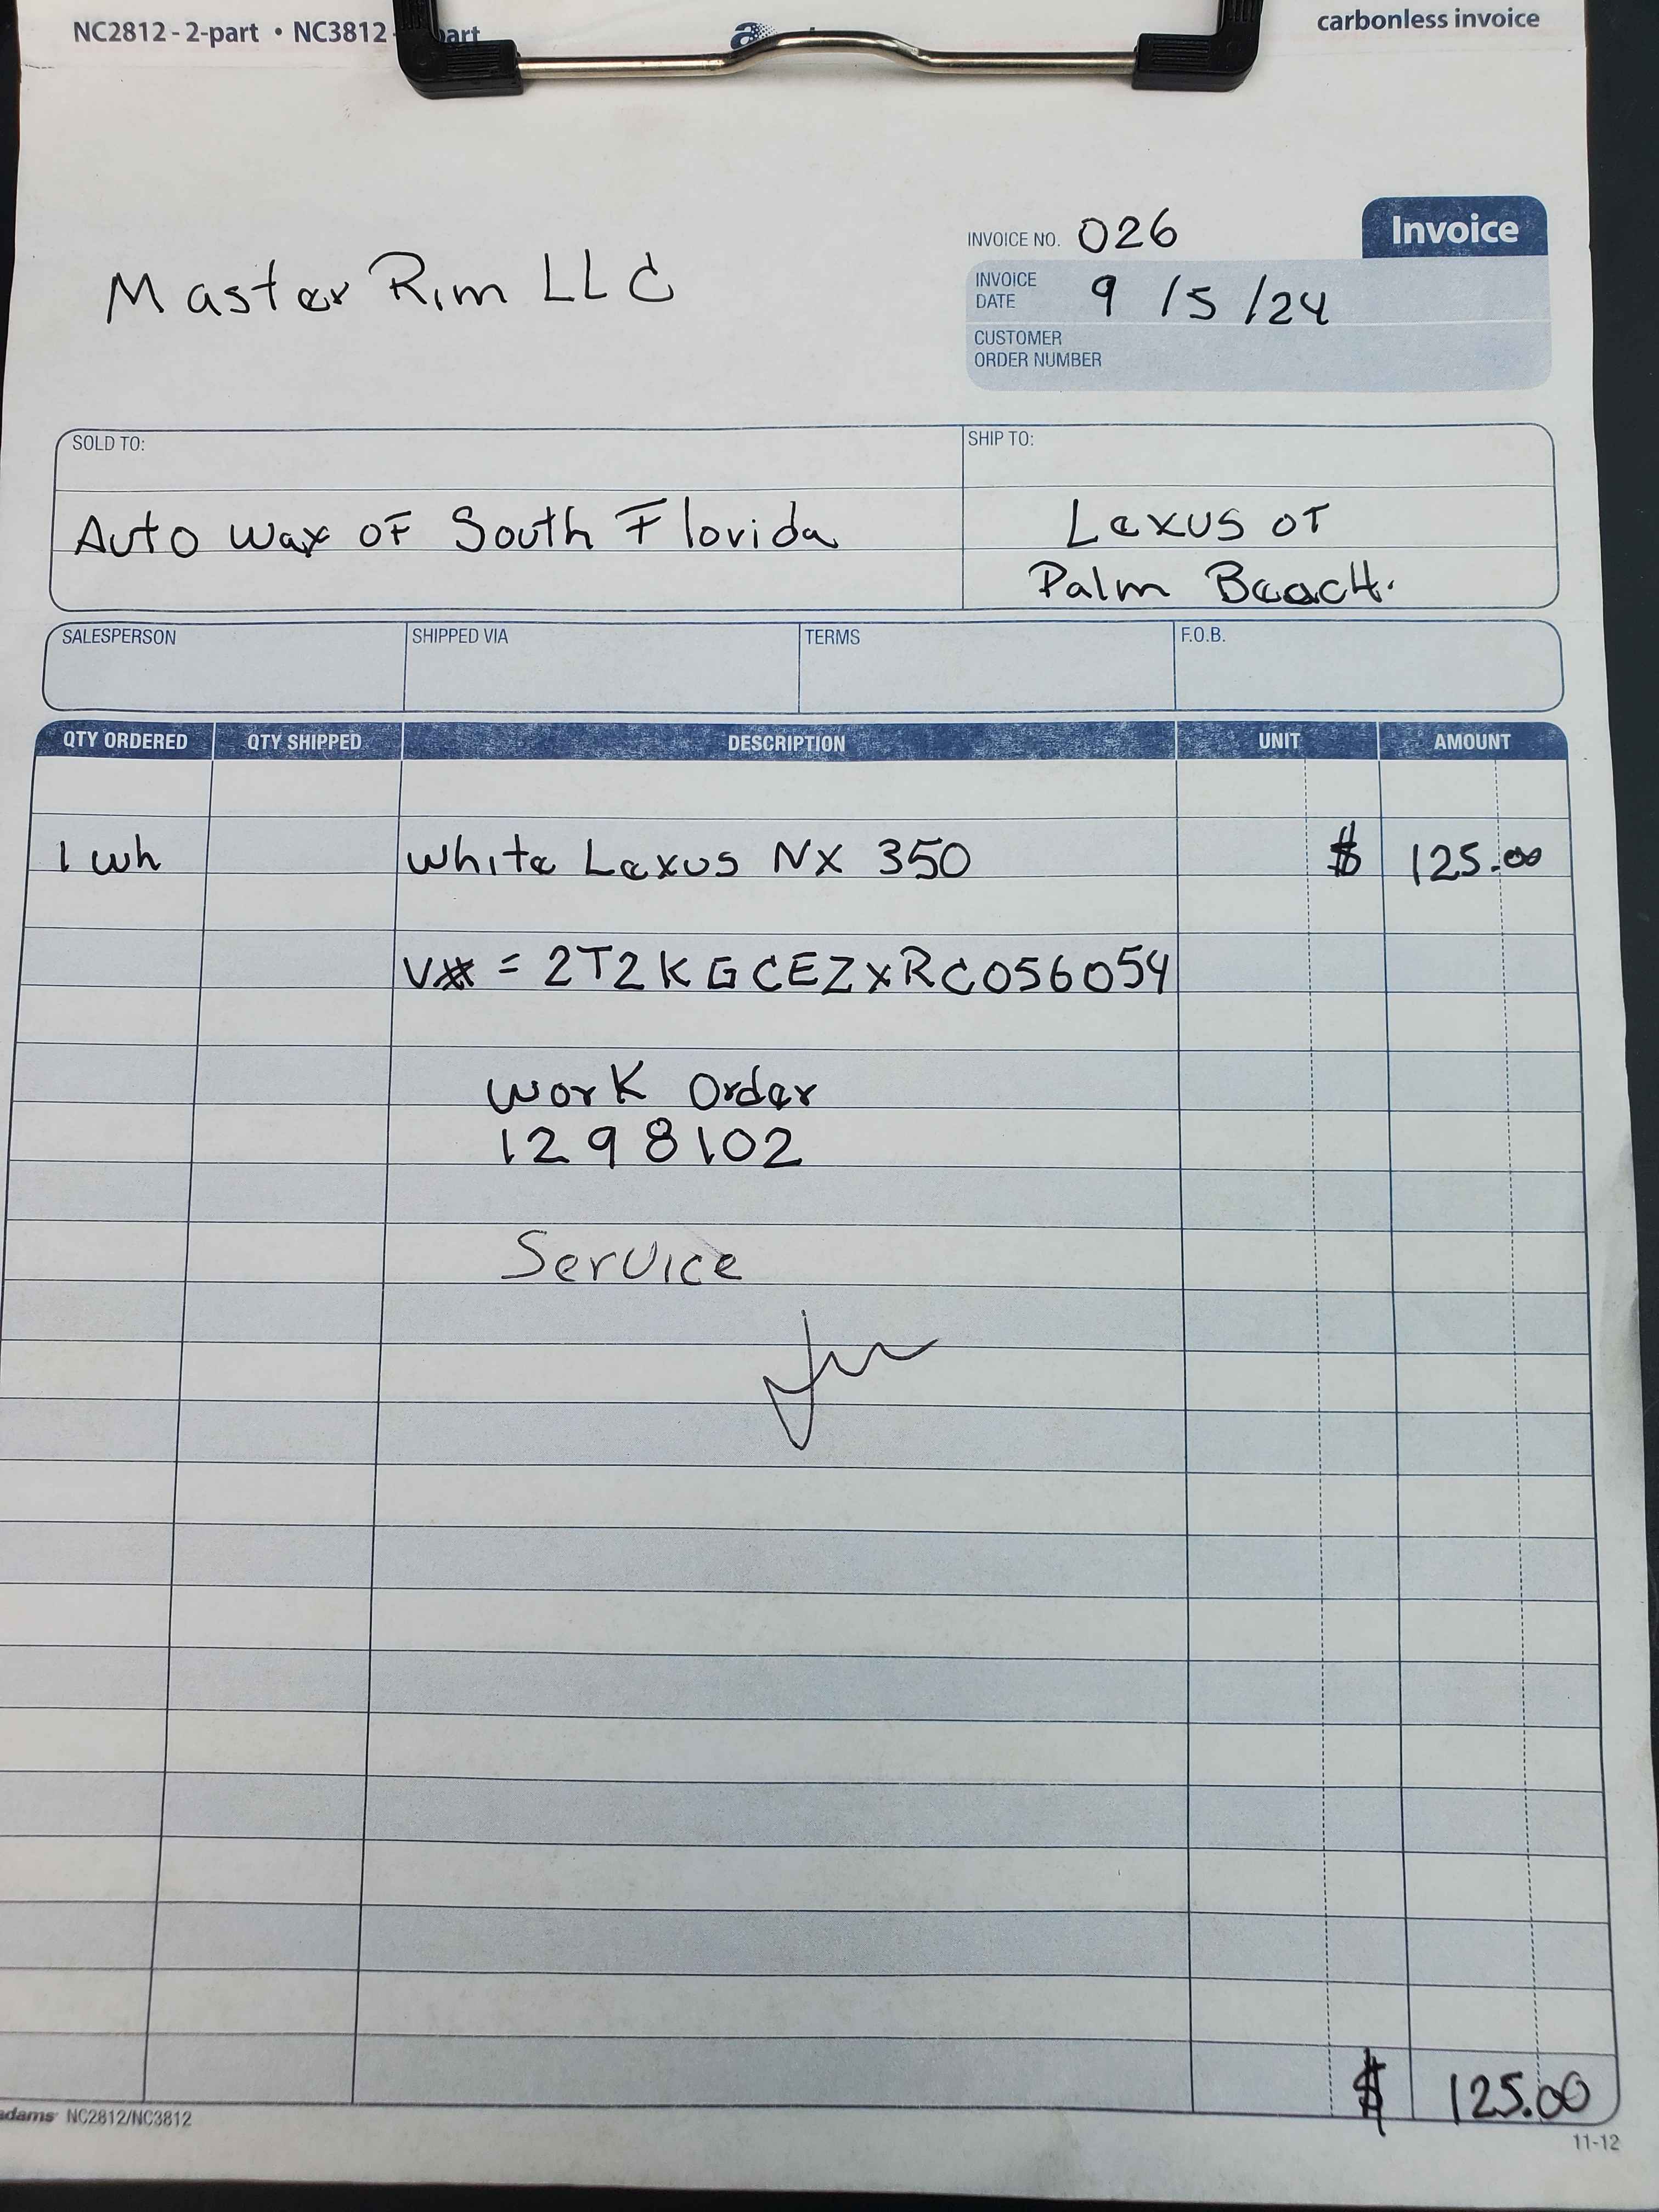 NC2812 - 2-part • NC3812
part
carbonless invoice
Invoice
INVOICE NO. 026
Master Rim LLC
INVOICE DATE 9/5/24
CUSTOMER ORDER NUMBER
SOLD TO:
SHIP TO:
Auto Wax OF South Florida
Lexus of
Palm BeacH.
SALESPERSON SHIPPED VIA TERMS F.O.B.
QTY ORDERED QTY SHIPPED DESCRIPTION UNIT AMOUNT
1 wh White Lexus NX 350 $ 125.00
V# = 2T2KGCEZXRC056054
Work Order
1298102
Service
$ 125.00
adams NC2812/NC3812
11-12